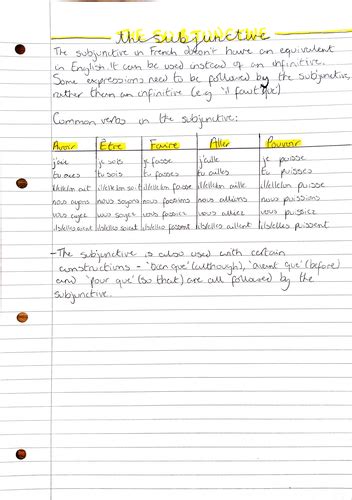 THE SUBJUNCTIVE
The subjunctive in French doesn't have an equivalent
in English. It can be used instead of an infinitive.
Some expressions need to be followed by the subjunctive,
rather than an infinitive (e.g 'il faut que)
Common verbs in the subjunctive:
Avoir Être Faire Aller Pouvoir
j'aie je sois je fasse j'aille je puisse
tu aies tu sois tu fasses tu ailles tu puisses
il/elle/on ait il/elle/on soit il/elle/on fasse il/elle/on aille il/elle/on puisse
nous ayons nous soyons nous fassions nous allions nous puissions
vous ayez vous soyez vous fassiez vous alliez vous puissiez
ils/elles aient ils/elles soient ils/elles fassent ils/elles aillent ils/elles puissent
- The subjunctive is also used with certain
constructions - 'bien que' (although), 'avant que' (before)
and 'pour que' (so that) are all followed by the
subjunctive.